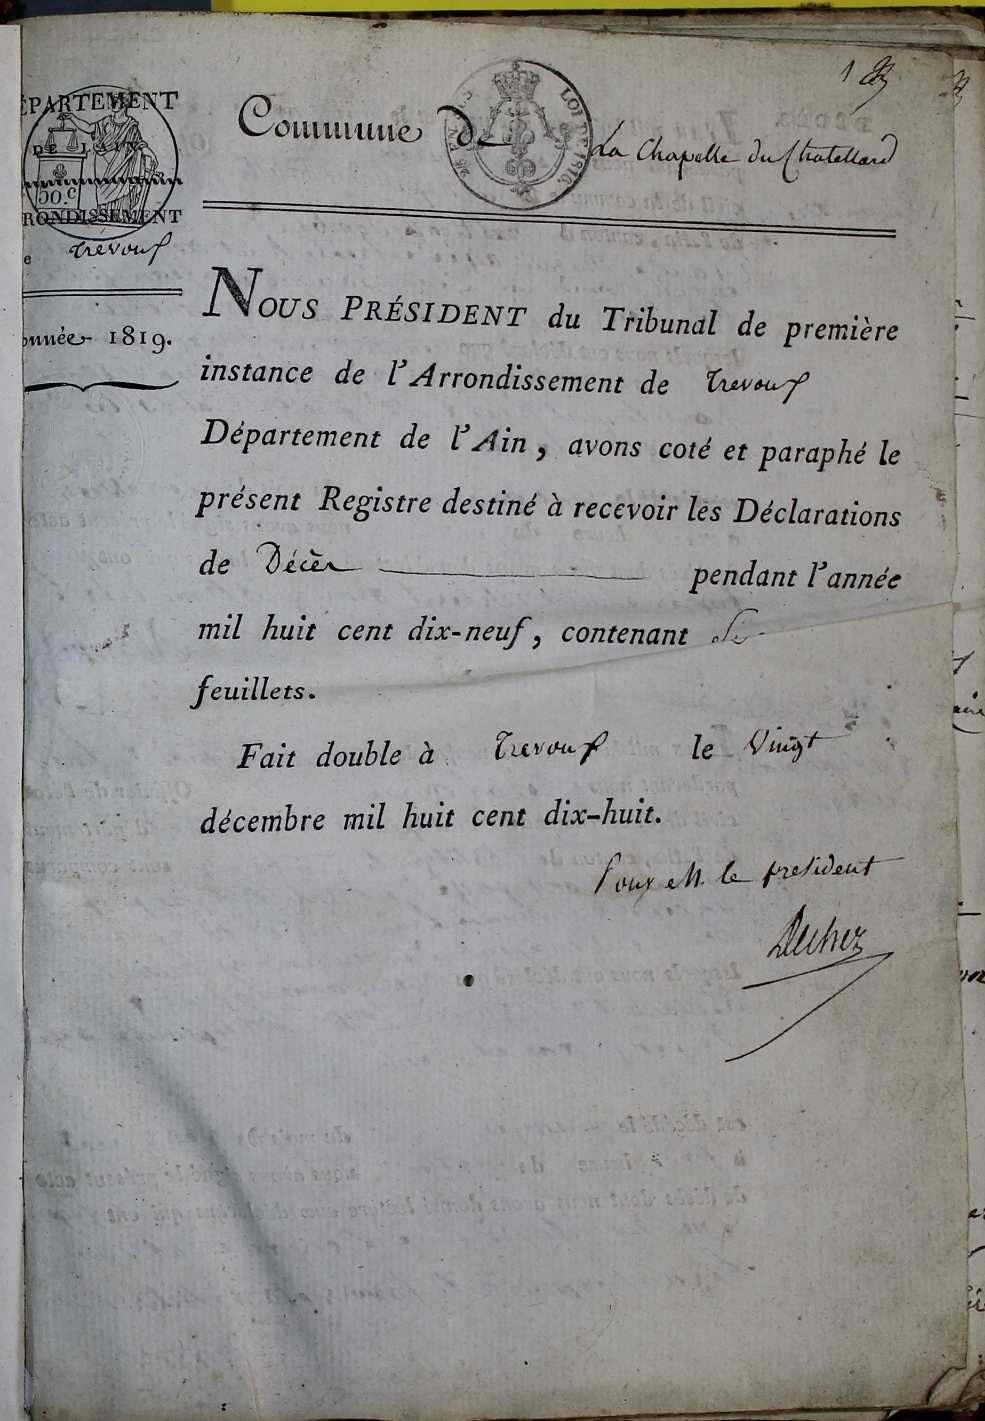 1
ÉPARTEMENT
DE L'AIN
50.c
RONDISSEMENT
e Trevoux
année 1819.
Commune de La Chapelle du Chatellard
LOI DE 1816.
NOUS PRÉSIDENT du Tribunal de première
instance de l'Arrondissement de Trevoux
Département de l'Ain, avons coté et paraphé le
présent Registre destiné à recevoir les Déclarations
de Décès pendant l'année
mil huit cent dix-neuf, contenant
feuillets.
Fait double à Trevoux le Vingt
décembre mil huit cent dix-huit.
Pour M. le president